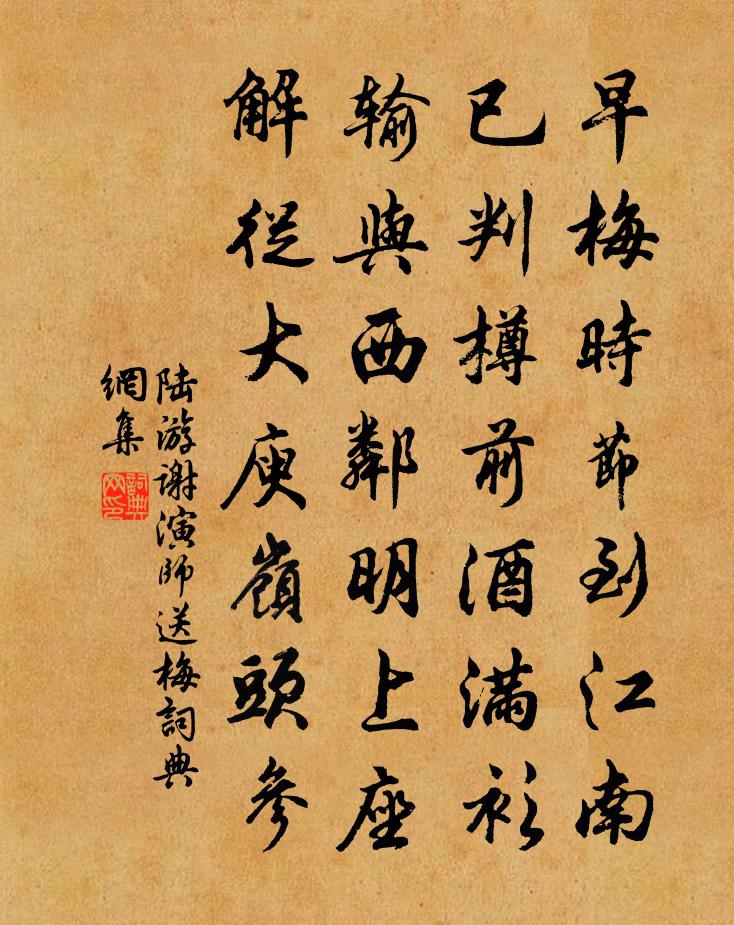 早梅時節到江南
已判樽前酒滿衫
輸與西鄰明上座
解從大庾嶺頭參
陸游謝演師送梅詞典
網集
詞典
网印